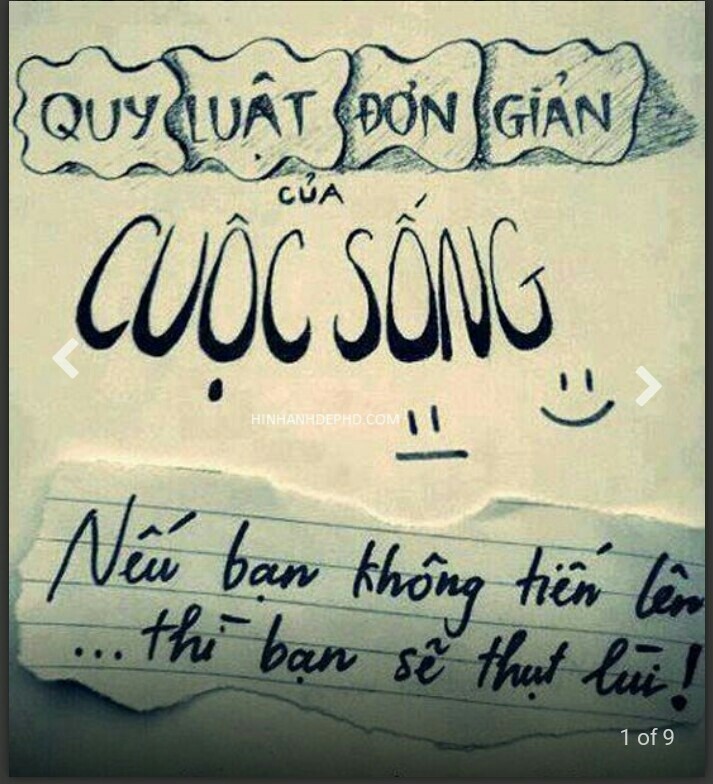 QUY LUẬT ĐƠN GIẢN
CỦA
CUỘC SỐNG
HINHANHDEPHD.COM
Nếu bạn không tiến lên
... thì bạn sẽ thụt lùi!
1 of 9